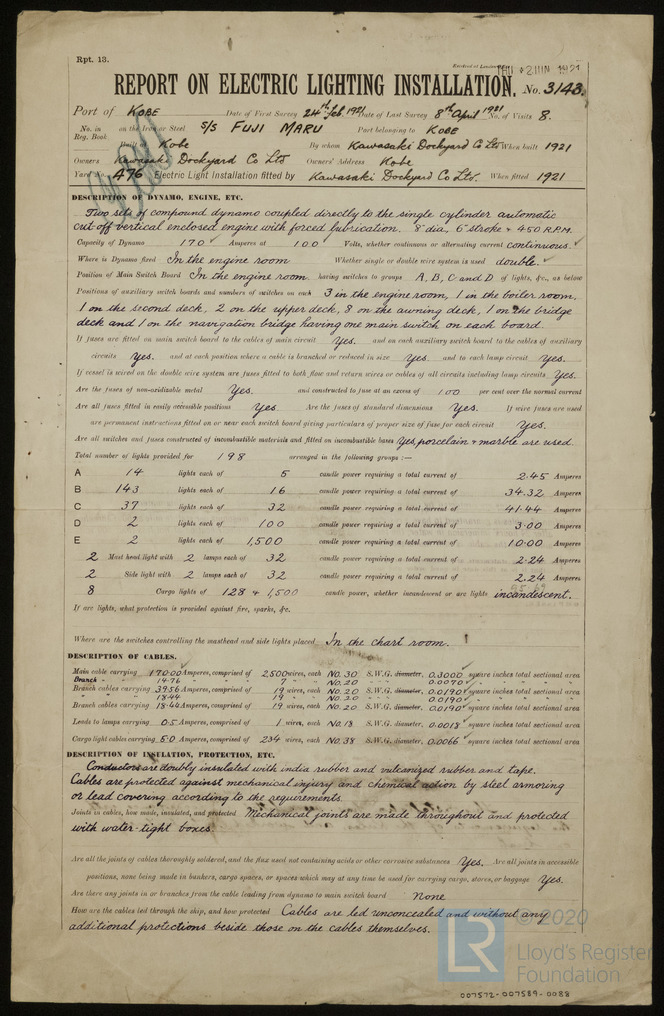 Rpt. 13.
Received at London
THU. 2 JUN 1921
REPORT ON ELECTRIC LIGHTING INSTALLATION. No. 3143.
Port of Kobe Date of First Survey 24th Feb. 1921 Date of Last Survey 8th April 1921 No. of Visits 8.
No. in Reg. Book on the Iron or Steel S/S FUJI MARU Port belonging to KOBE
Built at Kobe By whom Kawasaki Dockyard Co Ltd When built 1921
Owners Kawasaki Dockyard Co Ltd Owners' Address Kobe
Yard No. 476 Electric Light Installation fitted by Kawasaki Dockyard Co Ltd. When fitted 1921
DESCRIPTION OF DYNAMO, ENGINE, ETC.
Two sets of compound dynamo coupled directly to the single cylinder automatic
cut off vertical enclosed engine with forced lubrication. 8" dia, 6" stroke + 450 R.P.M.
Capacity of Dynamo 170 Amperes at 100 Volts, whether continuous or alternating current continuous.
Where is Dynamo fixed In the engine room Whether single or double wire system is used double.
Position of Main Switch Board In the engine room having switches to groups A, B, C and D of lights, &c., as below
Positions of auxiliary switch boards and numbers of switches on each 3 in the engine room, 1 in the boiler room,
1 on the second deck, 2 on the upper deck, 8 on the awning deck, 1 on the bridge
deck and 1 on the navigation bridge having one main switch on each board.
If fuses are fitted on main switch board to the cables of main circuit Yes. and on each auxiliary switch board to the cables of auxiliary
circuits Yes. and at each position where a cable is branched or reduced in size Yes. and to each lamp circuit Yes.
If vessel is wired on the double wire system are fuses fitted to both flow and return wires or cables of all circuits including lamp circuits Yes.
Are the fuses of non-oxidizable metal Yes. and constructed to fuse at an excess of 100 per cent over the normal current
Are all fuses fitted in easily accessible positions Yes Are the fuses of standard dimensions Yes. If wire fuses are used
are permanent instructions fitted on or near each switch board giving particulars of proper size of fuse for each circuit Yes.
Are all switches and fuses constructed of incombustible materials and fitted on incombustible bases Yes, porcelain + marble are used.
Total number of lights provided for 198 arranged in the following groups :—
A 14 lights each of 5 candle power requiring a total current of 2.45 Amperes
B 143 lights each of 16 candle power requiring a total current of 34.32 Amperes
C 37 lights each of 32 candle power requiring a total current of 41.44 Amperes
D 2 lights each of 100 candle power requiring a total current of 3.00 Amperes
E 2 lights each of 1,500 candle power requiring a total current of 10.00 Amperes
2 Mast head light with 2 lamps each of 32 candle power requiring a total current of 2.24 Amperes
2 Side light with 2 lamps each of 32 candle power requiring a total current of 2.24 Amperes
95.69
8 Cargo lights of 128 + 1,500 candle power, whether incandescent or arc lights incandescent.
If arc lights, what protection is provided against fire, sparks, &c.
Where are the switches controlling the masthead and side lights placed In the chart room.
DESCRIPTION OF CABLES.
Main cable carrying 170.00 Amperes, comprised of 2500 wires, each No. 30 S.W.G. diameter, 0.3000 square inches total sectional area
Branch " 14.76 7 " No. 20 0.0070
Branch cables carrying 39.56 Amperes, comprised of 19 wires, each No. 20 S.W.G. diameter, 0.0190 square inches total sectional area
" 18.44 19 " No. 20 0.0190
Branch cables carrying 18.44 Amperes, comprised of 19 wires, each No. 20 S.W.G. diameter, 0.0190 square inches total sectional area
Leads to lamps carrying 0.5 Amperes, comprised of 1 wires, each No. 18 S.W.G. diameter, 0.0018 square inches total sectional area
Cargo light cables carrying 5.0 Amperes, comprised of 234 wires, each No. 38 S.W.G. diameter, 0.0066 square inches total sectional area
DESCRIPTION OF INSULATION, PROTECTION, ETC.
Conductors are doubly insulated with india rubber and vulcanized rubber and tape.
Cables are protected against mechanical injury and chemical action by steel armoring
or lead covering according to the requirements.
Joints in cables, how made, insulated, and protected Mechanical joints are made throughout and protected
with water-tight boxes.
Are all the joints of cables thoroughly soldered, and the flux used not containing acids or other corrosive substances Yes. Are all joints in accessible
positions, none being made in bunkers, cargo spaces, or spaces which may at any time be used for carrying cargo, stores, or baggage Yes.
Are there any joints in or branches from the cable leading from dynamo to main switch board None
How are the cables led through the ship, and how protected Cables are led unconcealed and without any
additional protections beside those on the cables themselves.
© 2020
LR
Lloyd's Register
Foundation
007572-007589-0088